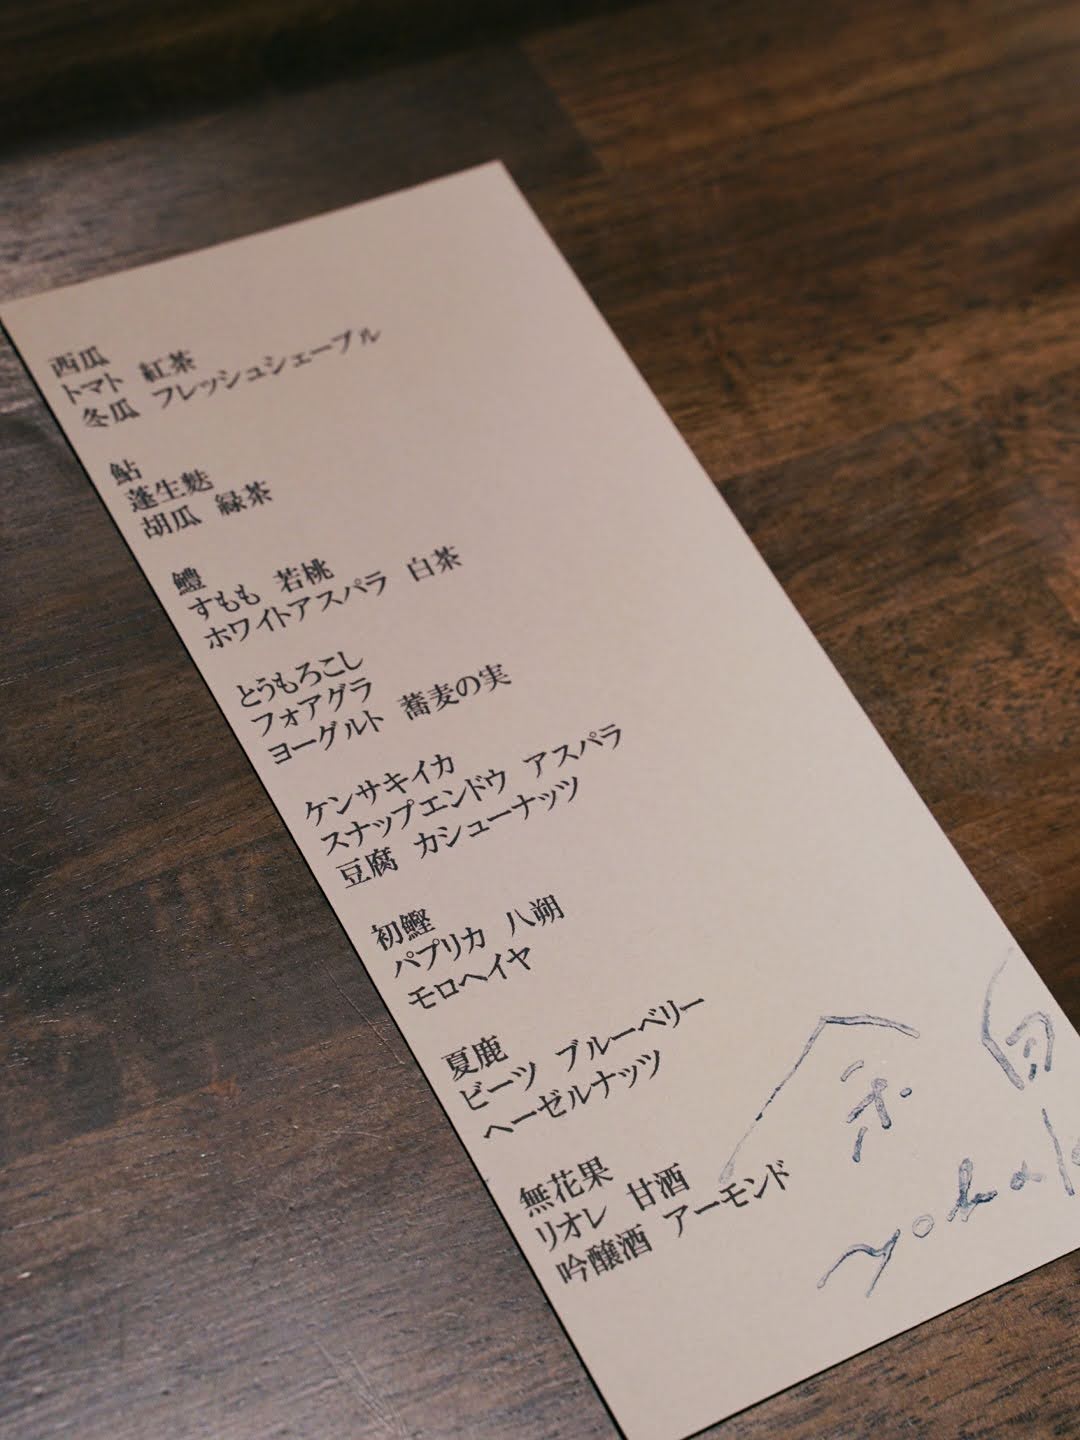 西瓜
トマト 紅茶
冬瓜 フレッシュシェーブル
鮎
蓬生麩
胡瓜 緑茶
鱧
すもも 若桃
ホワイトアスパラ 白茶
とうもろこし
フォアグラ
ヨーグルト 蕎麦の実
ケンサキイカ
スナップエンドウ アスパラ
豆腐 カシューナッツ
初鰹
パプリカ 八朔
モロヘイヤ
夏鹿
ビーツ ブルーベリー
ヘーゼルナッツ
無花果
リオレ 甘酒
吟醸酒 アーモンド
余白